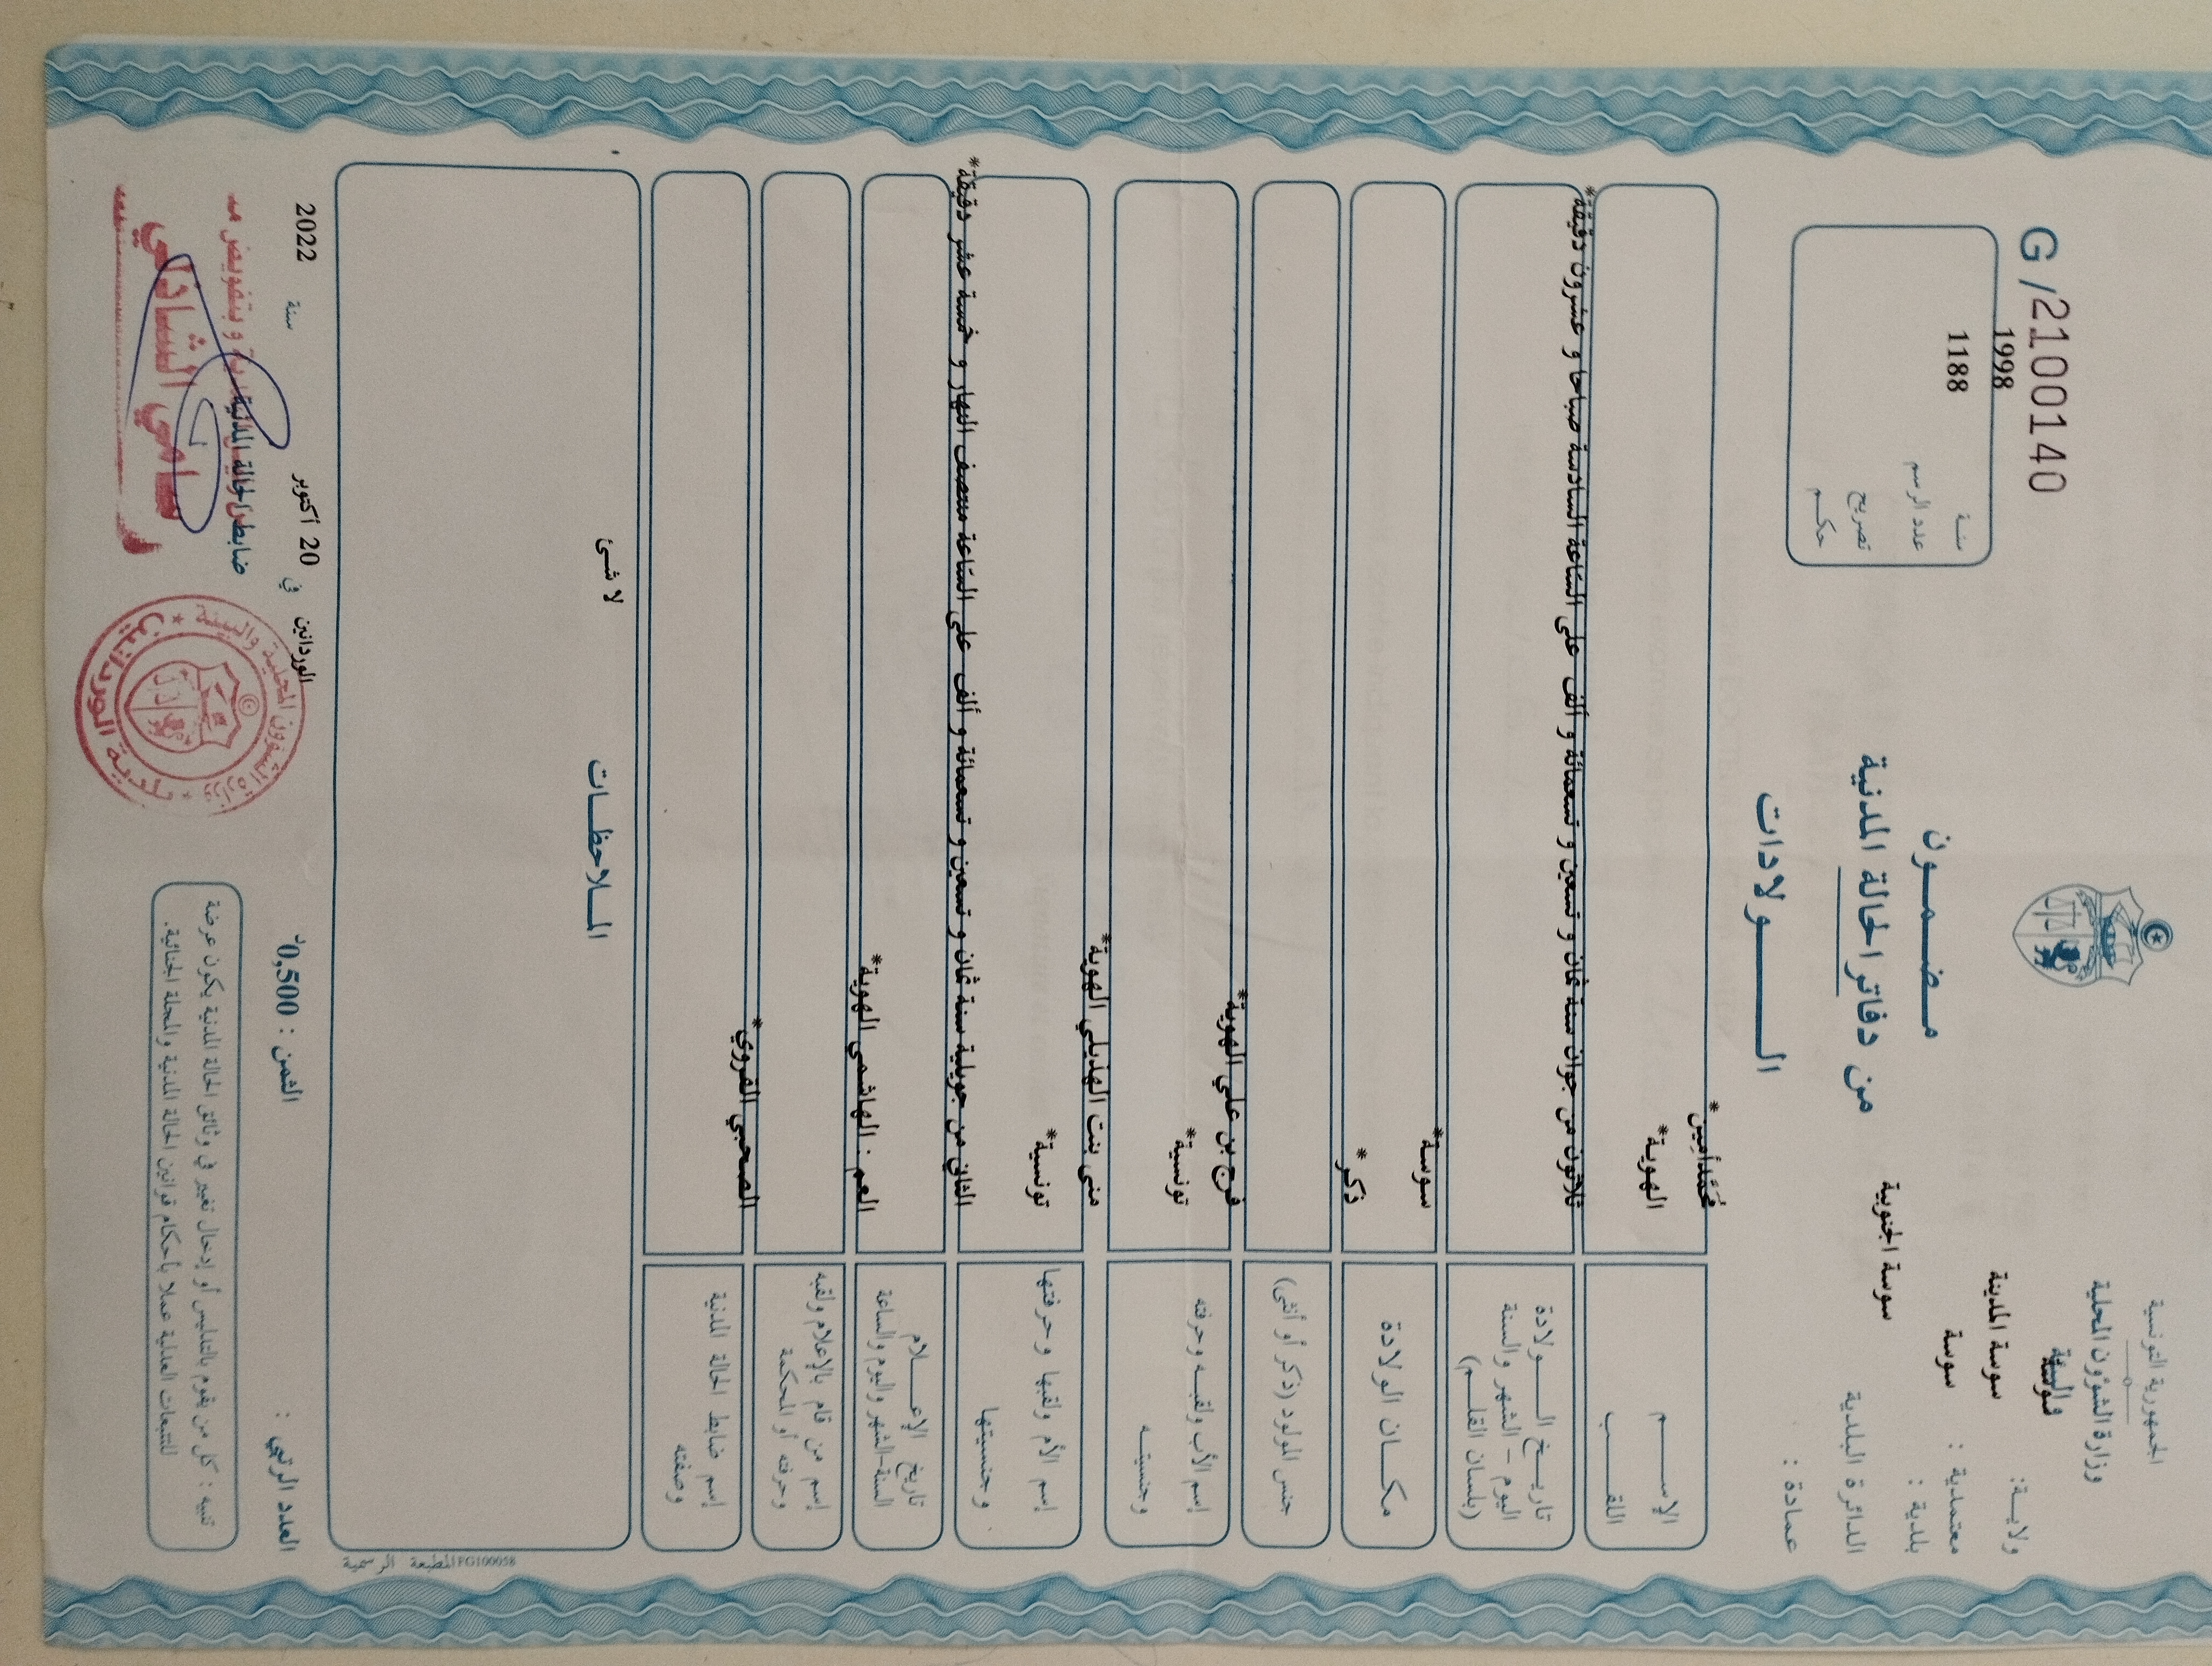 الجمهورية التونسية
وزارة الشؤون المحلية
والبيئة
ولايـة: سوسة
معتمدية : سوسة المدينة
بلدية : سوسة
الدائرة البلدية سوسة الجنوبية
عمادة :
G/2100140
سنـة 1998
عدد الرسم 1188
تصريح
حكـم
مـضـمـون
من دفاتر الحالة المدنية
الـــولادات
الإســـم محمد أمين*
اللقــب الهوية*
تاريــخ الــولادة ثلاثون من جوان سنة ثمان و تسعين و تسعمائة و ألف على السّاعة السادسة صباحا و عشرون دقيقة*
اليوم - الشهر والسنة
(بلسان القلـم)
مكــان الولادة سوسة*
جنس المولود (ذكر أو أنثى) ذكر*
إسم الأب ولقبـه وحرفته فرج بن علي الهوية*
وجنسيتـه تونسية*
إسم الأم ولقبها وحرفتها منى بنت الهذيلي الهوية*
وجنسيتها تونسية*
تاريخ الإعــلام الثاني من جويلية سنة ثمان و تسعين و تسعمائة و ألف على السّاعة منتصف النهار و خمسة عشر دقيقة*
السنة-الشهر واليوم والساعة
إسم من قام بالإعلام ولقبه العم : الهاشمي الهوية*
وحرفته أو المحكمة
إسم ضابط الحالة المدنية الصحبي القروي*
وصفته
المـلاحظـات
لا شئ
المطبعة الرسمية PG100058
العدد الرتبي :
الثمن : 0,500د
الوردانين في 20 أكتوبر سنة 2022
ضابط الحالة المدنية
و بتفويض منه
سامي الشاذلي
وزارة الشؤون المحلية والبيئة
بلدية الوردانين
تنبيه : كل من يقوم بالتدليس أو إدخال تغيير في وثائق الحالة المدنية يكون عرضة
للتتبعات العدلية عملا بأحكام قوانين الحالة المدنية والمجلة الجنائية.